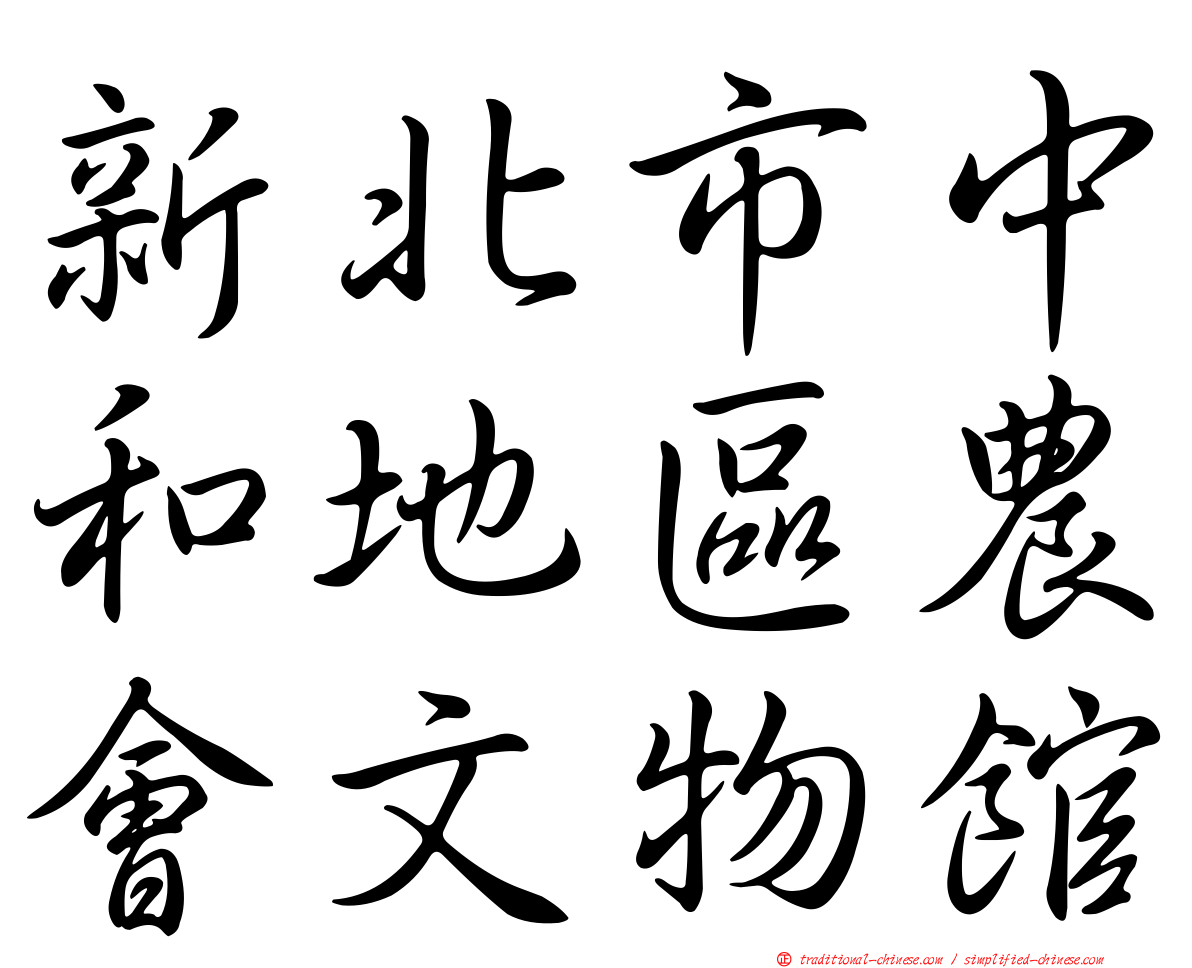 新北市中
和地區農
會文物館
㊣ traditional-chinese.com / simplified-chinese.com